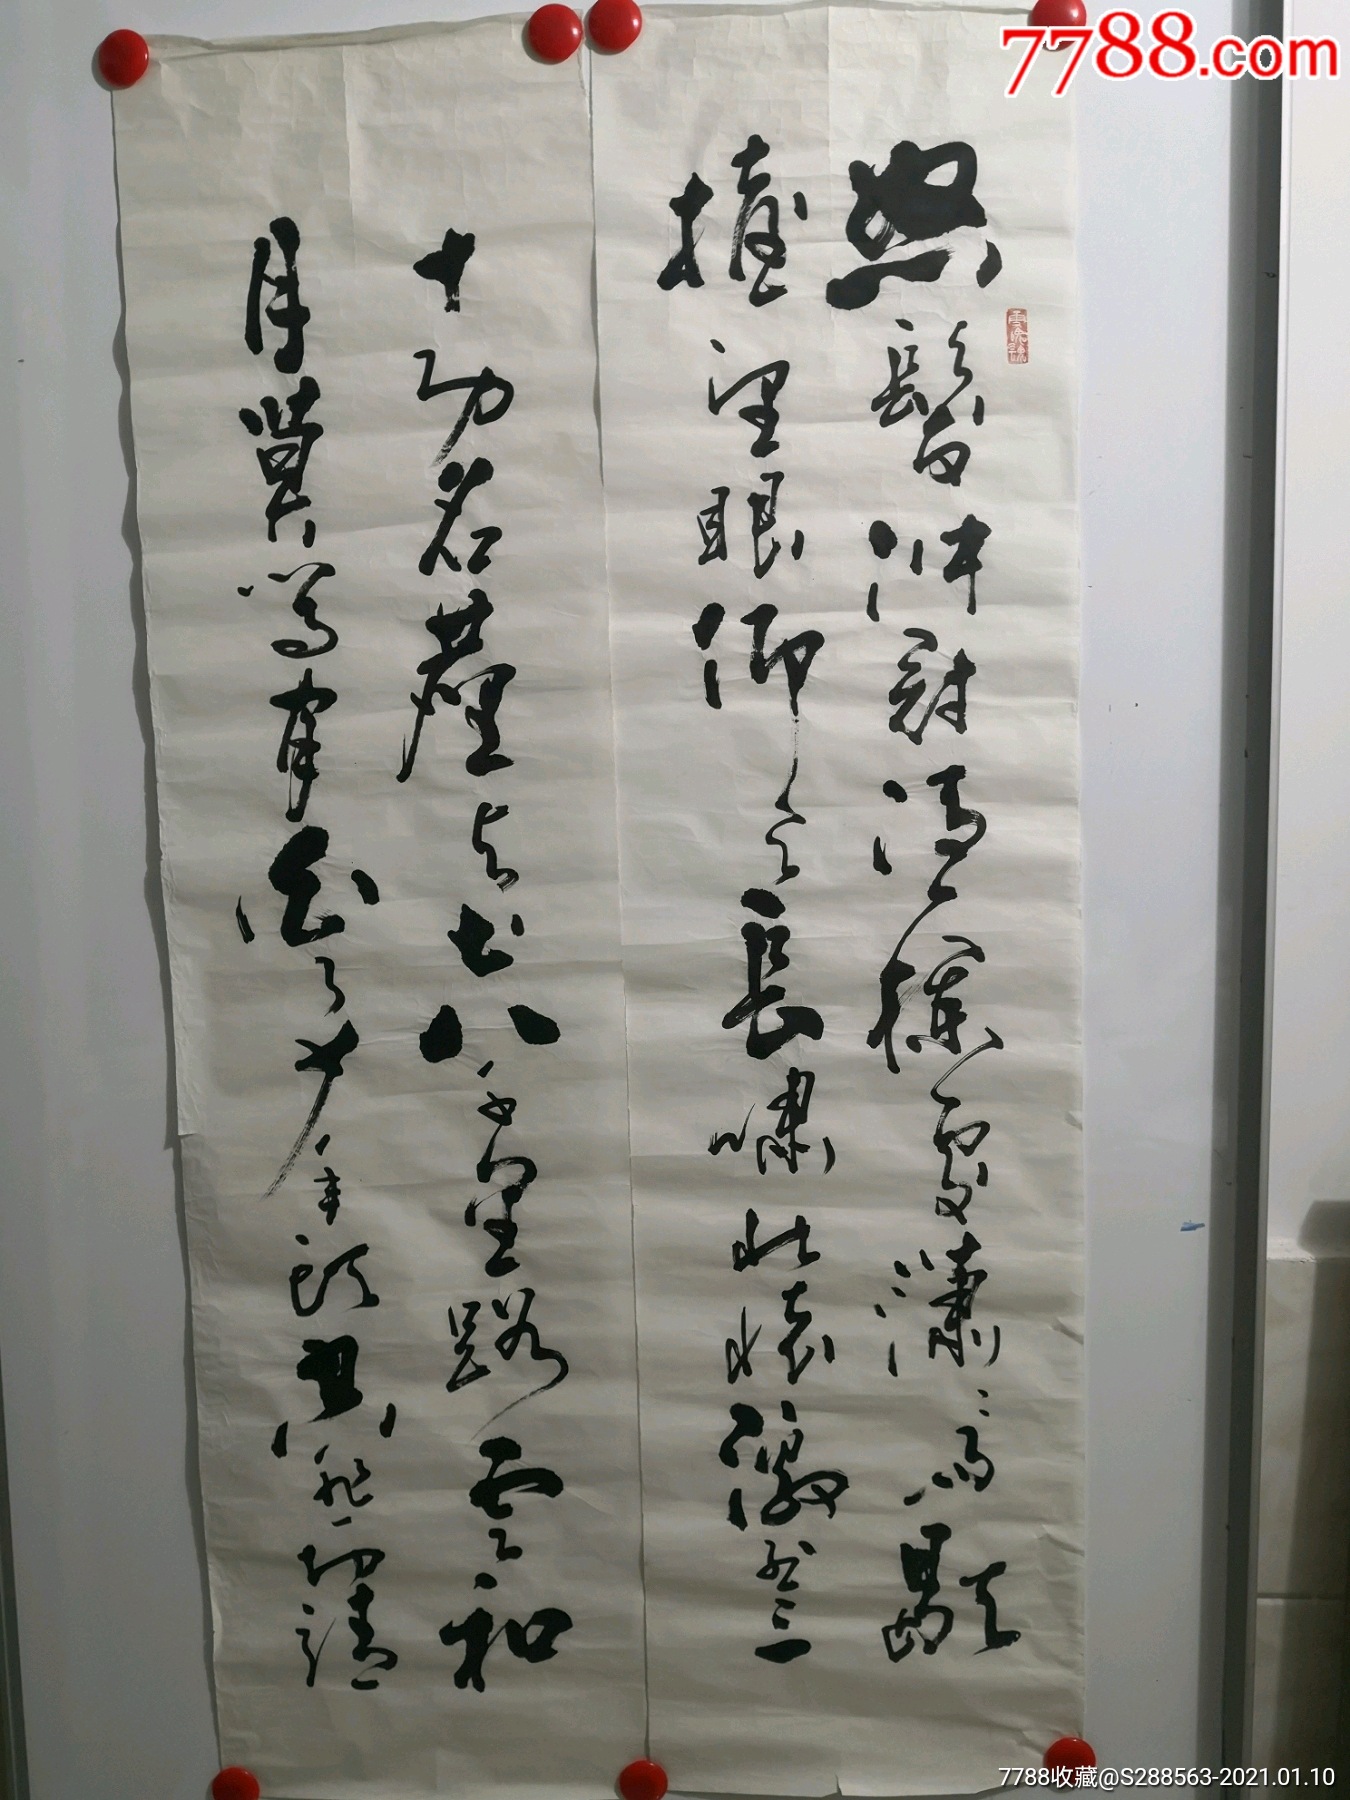 7788.com
怒髮冲冠凭欄處瀟瀟雨歇
擡望眼仰天長嘯壮懷激烈三
十功名塵与土八千里路雲和
月莫等閑白了少年頭空悲切靖
7788收藏@S288563-2021.01.10